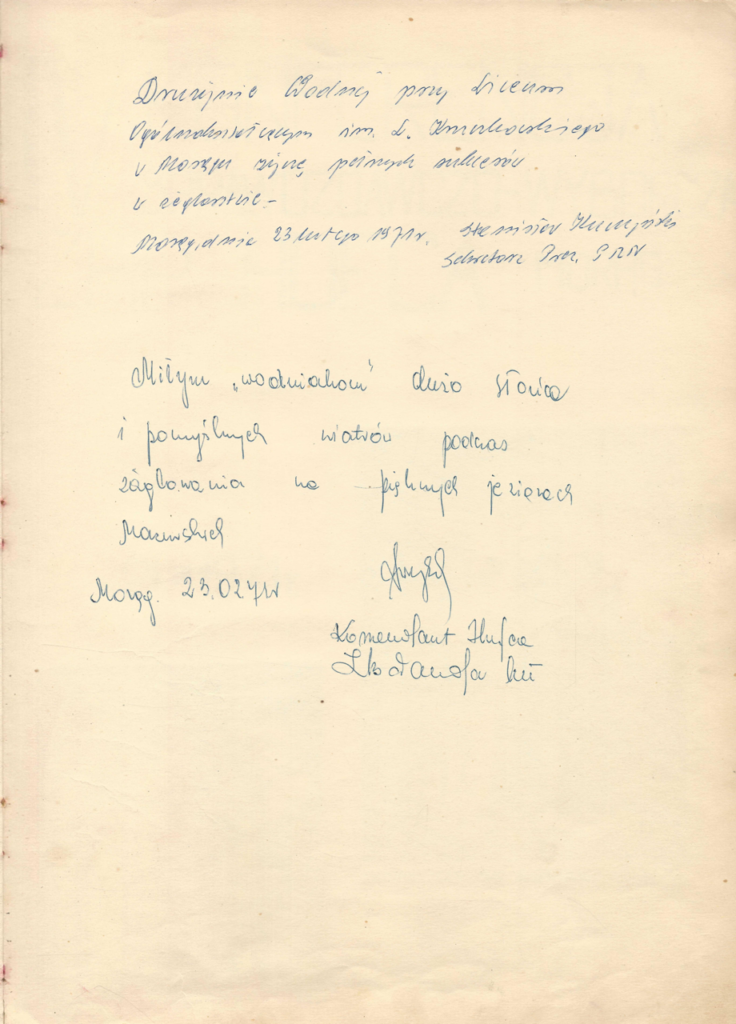 Drużynie Wodnej przy Liceum
Ogólnokształcącym im. L. Kruczkowskiego
w Morągu życzę pełnych sukcesów
w żeglarstwie –
Morąg, dnia 23 lutego 1971r. Stanisław
Sekretarz Prez. PRN
Miłym „wodniakom” dużo słońca
i pomyślnych wiatrów podczas
żaglowania na pięknych jeziorach
Mazurskich
Morąg. 23.0271r
Komendant Hufca